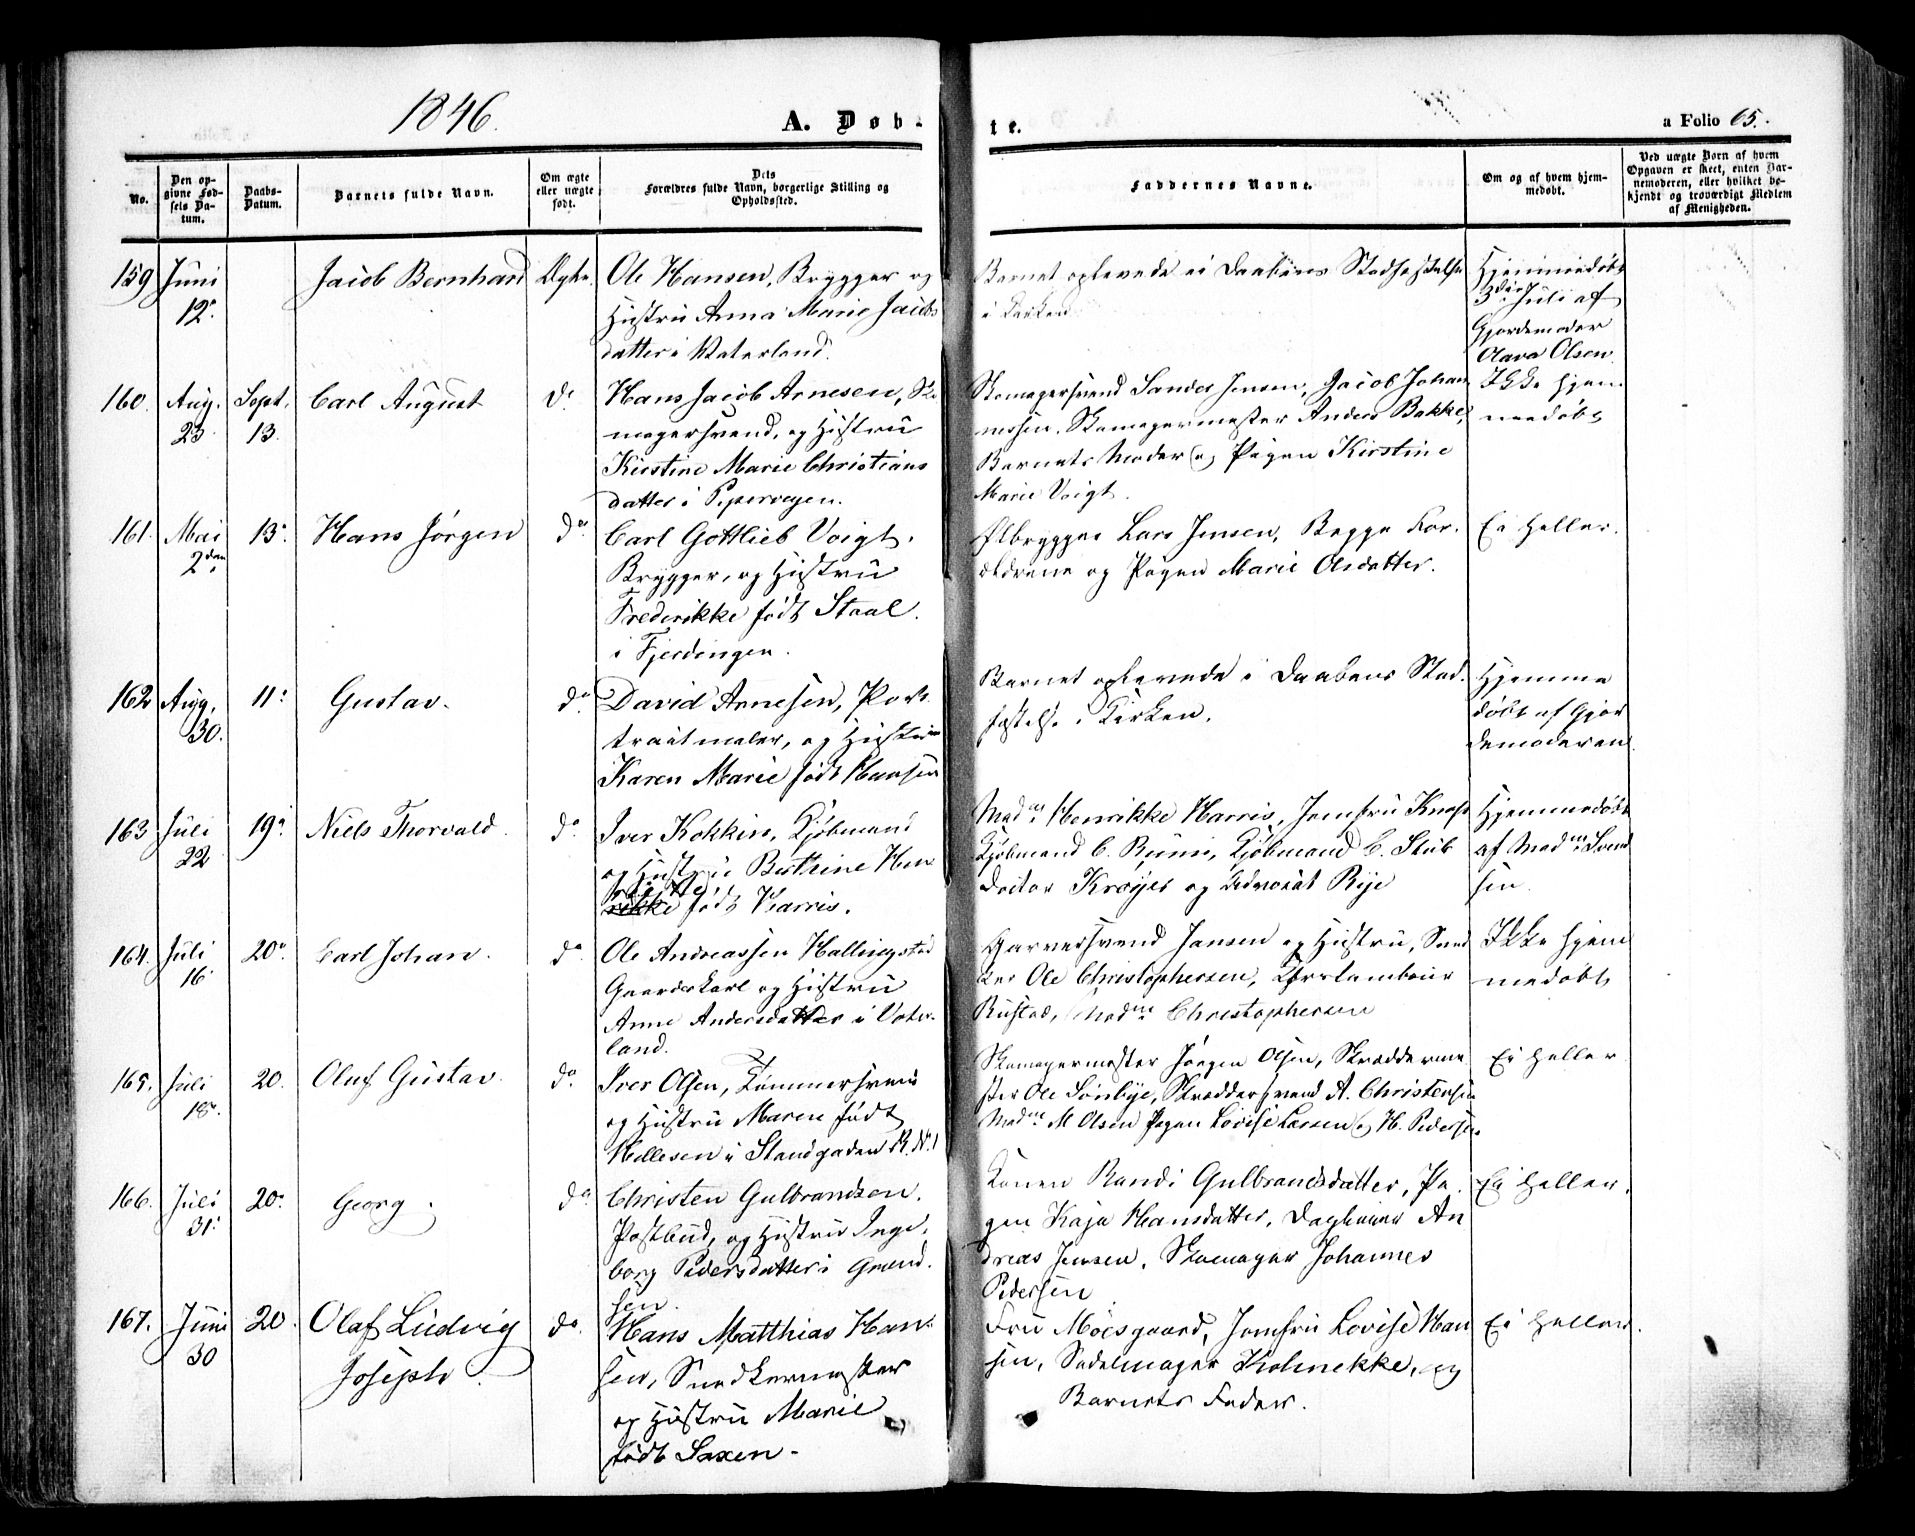 1846.
A. Døb-
te.
a Folio 65.
No.
Den op-
givne Fød-
sels Da-
tum.
Daabs-
Datum.
Barnets fulde Navn.
Om ægte
eller uægte
født.
Dets
Forældres fulde Navn, borgerlige Stilling og
Opholdssted.
Faddernes Navne.
Om og af hvem hjem-
medøbt.
Ved uægte Born af hvem
Opgaven er skeet, enten Bar-
nemoderen, eller hvilket be-
kjendt og troværdigt Medlem
af Menigheden.
159 Juni
12.
Jacob Bernhard
Ægte.
Ole Hansen, Brygger og
Hustru Anna Marie Jacobs
datter i Vaterland.
Barnet oplevede ei Daabens Stadfæstelse
i Kirken
Hjemmedøbt
3die Juli af
Gjordemoder
Olava Olsen.
160. Aug.
23.
Sept.
13.
Carl August
do.
Hans Jacob Arnesen, Sko
magersvend, og Hustru
Kirstine Marie Christians
datter i Pipervigen.
Skomagersvend Sander Jensen, Jacob Johan
nesen. Skomagermester Anders Bakke,
Barnets Moder og Pigen Kirstine
Marie Voigt.
Ikke hjem-
medøbt
161. Mai
2den
13.
Hans Jørgen
do
Carl Gottlieb Voigt,
Brygger, og Hustru
Frederikke født Staal.
i Fjerdingen.
Ølbrygger Lars Jensen, Begge For-
ældrene og Pigen Marie Olsdatter.
Ei heller.
162 Aug.
30.
11.
Gustav.
do.
David Arnesen, Por
traitmaler, og Hustru
Karen Marie født Hansen
Barnet oplevede i Daabens Stad-
fæstelse i Kirken.
Hjemme
døbt af Gjor
demoderen
163 Juli
22
19.
Niels Thorvald.
do
Iver Kokkin, Kjøbmand
og Hustru Birthine Hen
rikke født Harris.
Madme Henrikke Harris, Jomfru
Kjøbmand C. Kjøbmand C. Stub
Doctor Krøyer og Advocat Rye
Hjemmedøbt
af Madme Svend
sen.
164. Juli
16.
20.
Carl Johan.
do
Ole Andreassen Hallingstad
Gaardskarl og Hustru
Anne Andersdatter i Vater-
land.
Garversvend Jansen og Hustru, Sned
ker Ole Christophersen,
Rustad, Madme Christophersen
Ikke hjem
medøbt
165. Juli
18.
20.
Oluf Gustav.
do
Iver Olsen, Tømmersvend
og Hustru Maren født
Hellesen i
Skomagermester Jørgen Olsen, Skrædderme
ster Ole Sønbye, Skræddersvend A. Christensen
Madme M Olsen Pigen Lovise Larsen og H. Pedersen.
Ei heller
166. Juli
31.
20.
Georg.
do
Christen Gulbrandsen.
Postbud, og Hustru Inge-
borg Pedersdatter i Grønd-
sen.
Konen Randi Gulbrandsdatter, Pi-
gen Kaja Hansdatter, An
dreas Jensen, Skomager Johannes
Pedersen
Ei heller.
167. Juni
30
20.
Olaf Ludvig
Joseph.
do.
Hans Matthias Han-
sen, Snedkermester
og Hustru Marie
født Saxen.
Fru Moesgaard, Jomfru Lovise Han
sen, Sadelmager Kolnekke, og
Barnets Fader.
Ei heller.